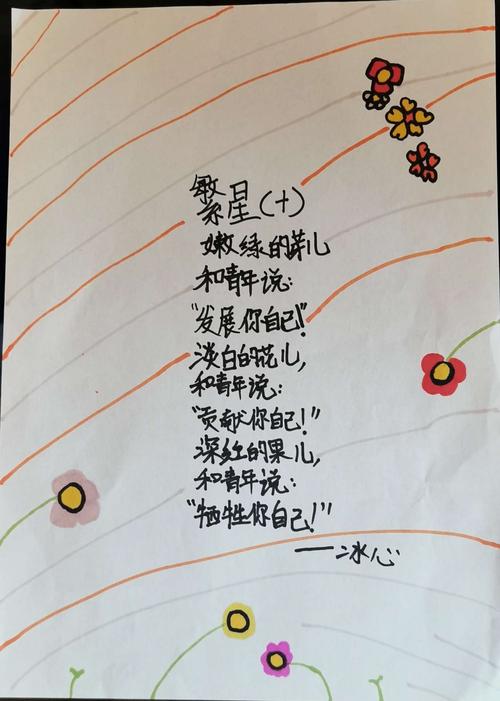 繁星(十)
嫩绿的芽儿
和青年说:
"发展你自己!"
淡白的花儿,
和青年说:
"贡献你自己!"
深红的果儿,
和青年说:
"牺牲你自己!"
——冰心